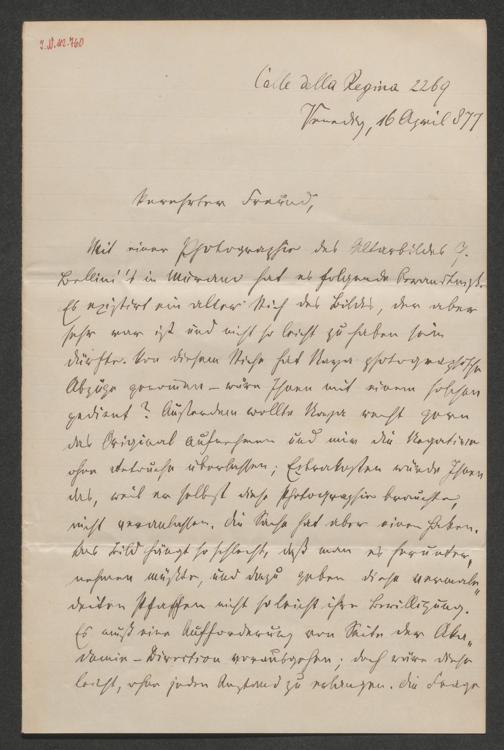 I.N. 112.760
Calle della Regina 2269
Venedig, 16 April 877
Verehrter Freund,
Mit einer Photographie des Altarbildes J.
Bellini's in Murano hat es folgende Bewandtniß.
Es existirt ein alter Stich des Bildes, der aber
sehr rar ist und nicht so leicht zu haben sein
dürfte. Von diesem Stiche hat Naya photographische
Abzüge genommen – wäre Ihnen mit einem solchen
gedient? Außerdem wollte Naya recht gern
das Original aufnehmen und mir die Negative
ohne überlassen; Extrakosten würde Ihnen
das, weil er selbst diese Photographie brauchte,
nicht veranlassen. Die Sache hat aber einen Haken.
Das Bild hängt so schlecht, daß man es herunter„
nehmen müßte, und dazu geben diese vermale„
deiten Pfaffen nicht so leicht ihre Bewilligung.
Es muß eine Aufforderung von Seite der Aka„
demie-Direction vorausgehen; doch wäre diese
leicht, ohne jeden Anstand zu erlangen. Die Frage